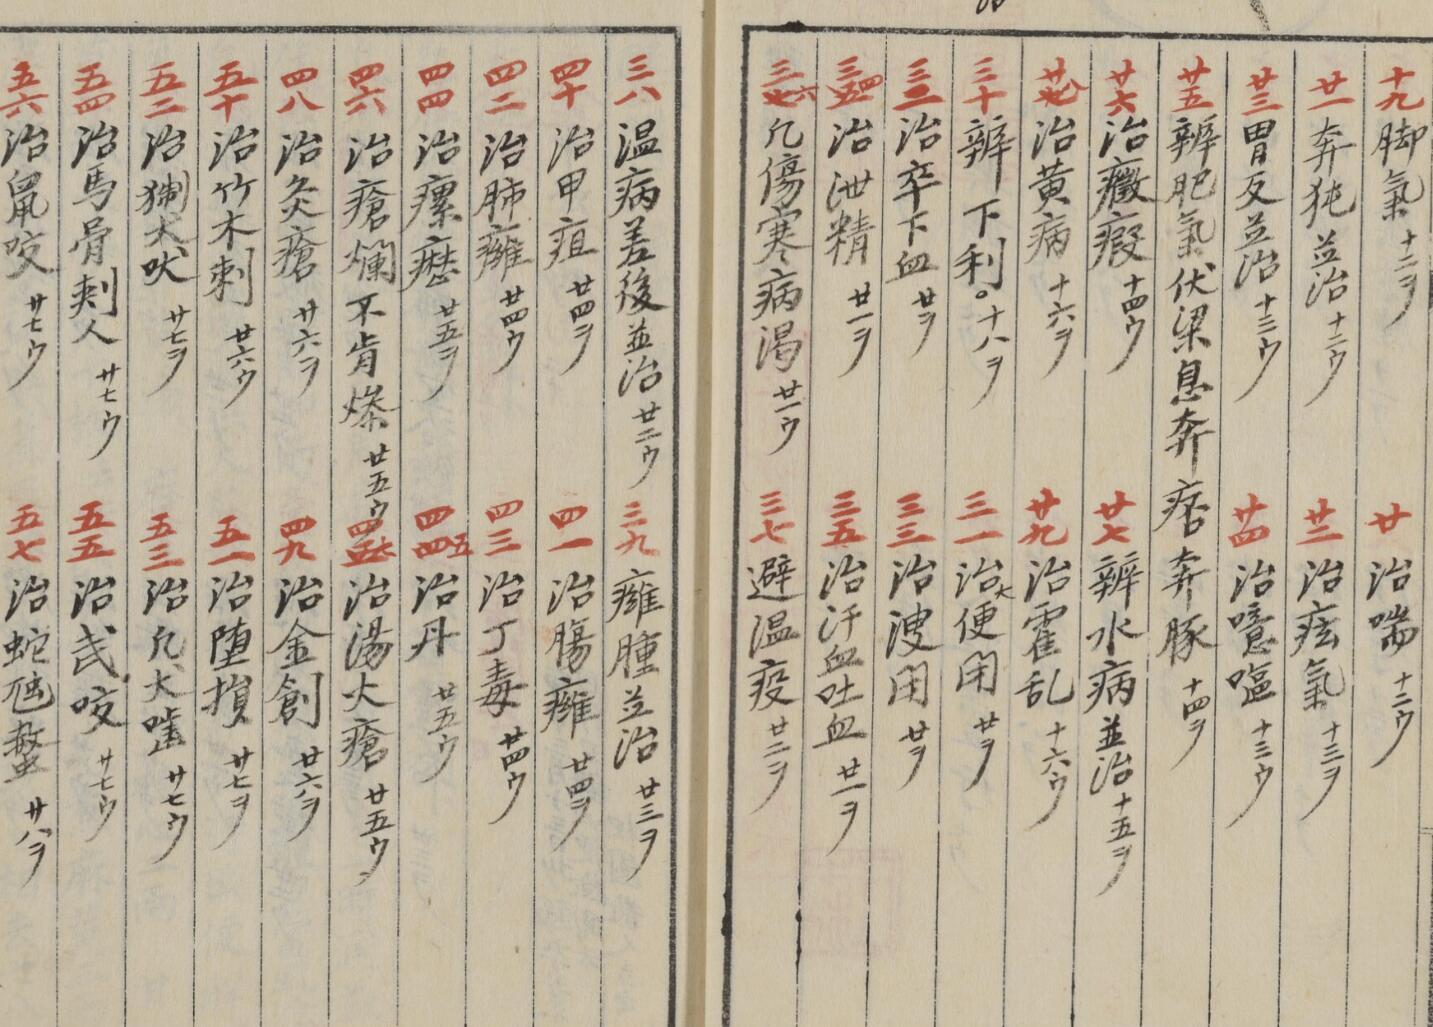 十九 脚氣 十二ヲ 廿 治喘 十二ウ
廿一 奔㹠並治 十二ウ 廿二 治痃氣 十三ヲ
廿三 胃反並治 十三ウ 廿四 治噫嘔 十三ウ
廿五 辨肥氣伏梁息奔痞奔豚 十四ヲ
廿六 治癥瘕 十四ウ 廿七 辨水病並治 十五ヲ
廿八 治黄病 十六ヲ 廿九 治霍乱 十六ウ
三十 辨下利 十八ヲ 三一 治大便閉 廿ヲ
三二 治卒下血 廿ヲ 三三 治溲閉 廿ヲ
三四 治泄精 廿一ヲ 三五 治汗血吐血 廿一ヲ
三六 凡傷寒病渇 廿一ウ 三七 避温疫 廿二ヲ
三八 温病差後並治 廿二ウ 三九 癰腫並治 廿三ヲ
四十 治甲疽 廿四ヲ 四一 治腸癰 廿四ヲ
四二 治肺癰 廿四ウ 四三 治丁毒 廿四ウ
四四 治瘰癧 廿五ヲ 四五 治丹 廿五ウ
四六 治瘡爛不肯燥 廿五ウ 四七 治湯火瘡 廿五ウ
四八 治灸瘡 廿六ヲ 四九 治金創 廿六ヲ
五十 治竹木刺 廿六ウ 五一 治堕損 廿七ヲ
五二 治猘犬吠 廿七ヲ 五三 治凡犬嚙 廿七ウ
五四 治馬骨刺人 廿七ウ 五五 治 咬 廿七ウ
五六 治鼠咬 廿七ウ 五七 治蛇虺螫 廿八ヲ